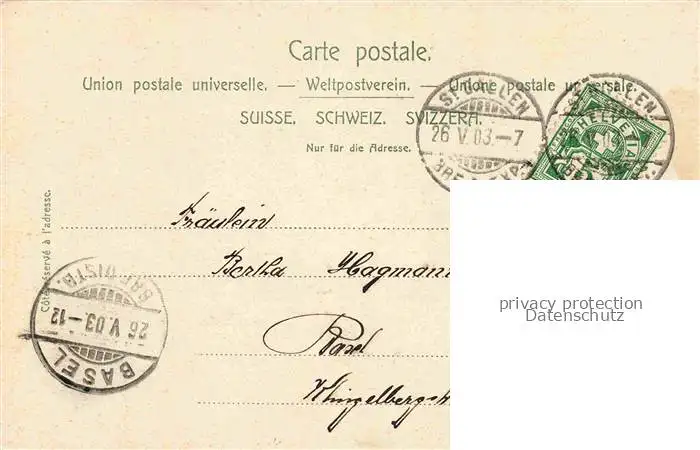 Carte postale.
Union postale universelle. — Weltpostverein. — Unione postale universale.
SUISSE. SCHWEIZ. SVIZZERA.
Nur für die Adresse.
ST. GALLEN
26 V.03.-7
HELVETIA
Côté réservé à l'adresse.
Fräulein
Bertha Hagmann
Basel
Klingelbergst
BRF. DISTR.
26 V.03-12
BASEL
privacy protection
Datenschutz